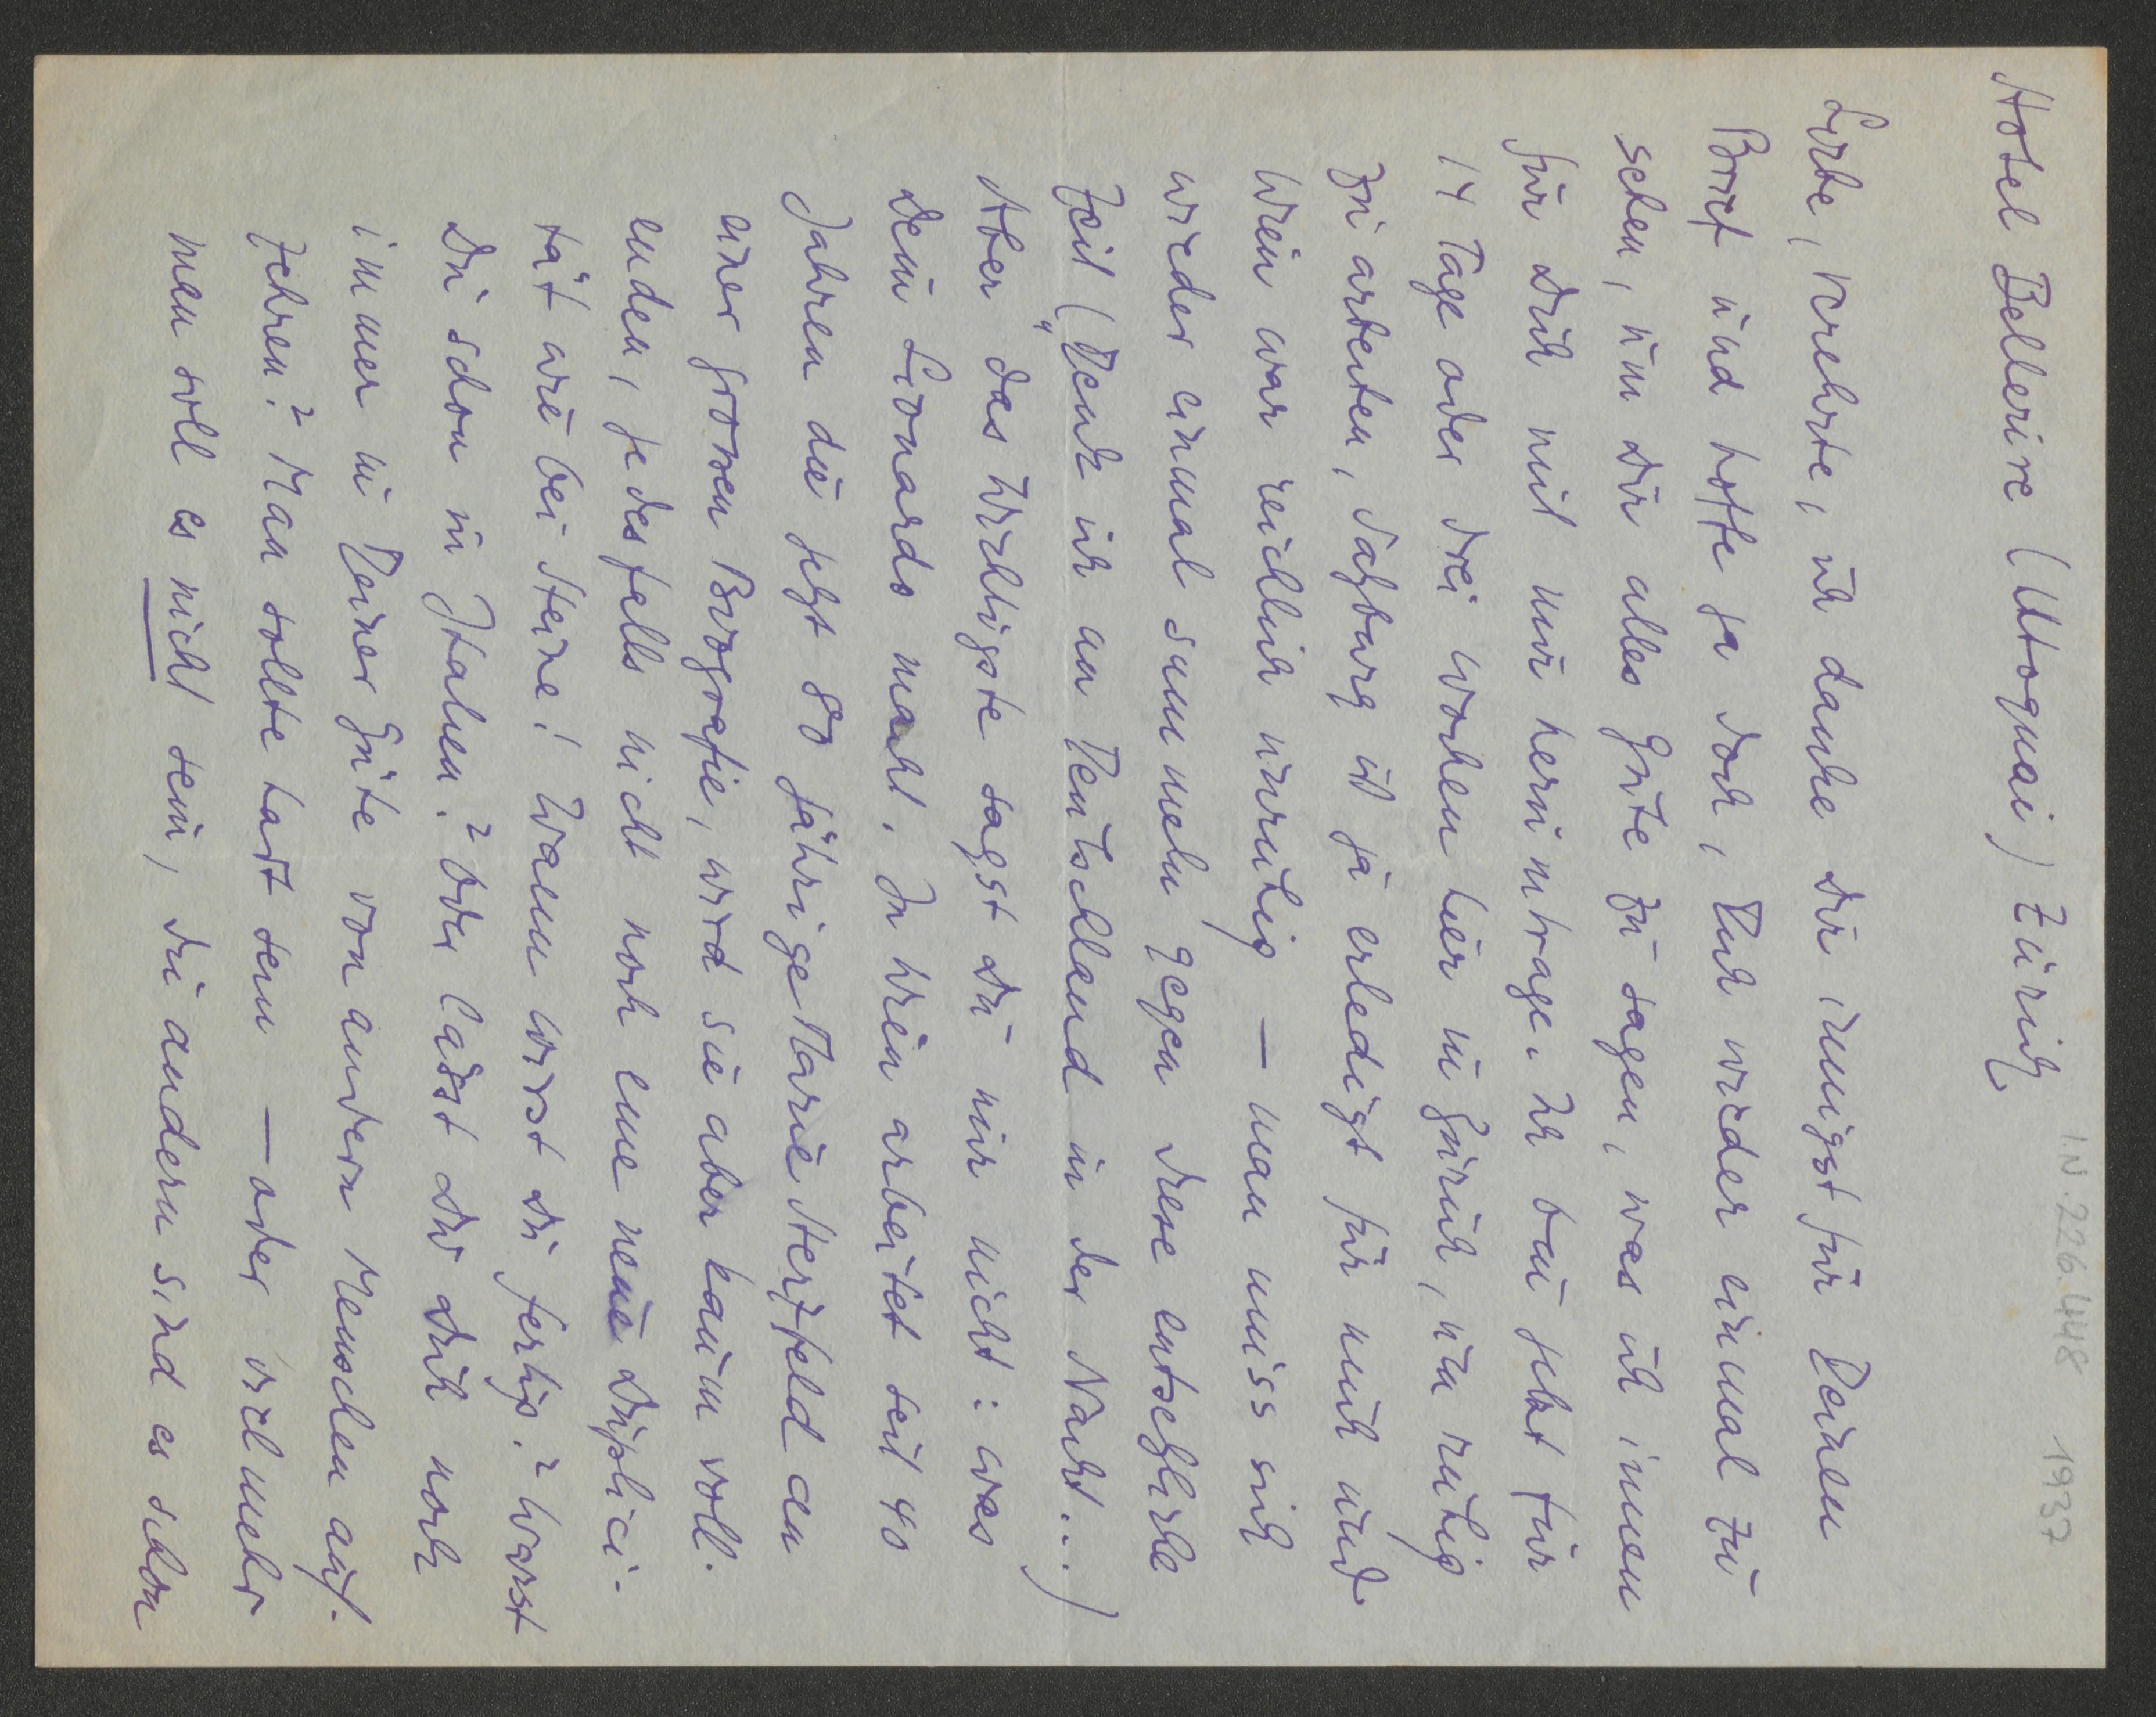 I.N. 226.448 1937
Hotel Bellerive (Utoquai) Zürich
Liebe, verehrte, ich danke Dir innigst für Deinen
Brief und hoffe ja doch, Dich wieder einmal zu
sehen, um Dir alles Gute zu sagen, was ich innen
für Dich mit mir herumtrage. Ich bin jetzt für
14 Tage oder drei Wochen hier in Zürich, um ruhig
zu arbeiten, Salzburg ist ja erledigt für mich und
Wien war reichlich unruhig – man muss sich
wieder einmal sammeln gegen diese entsetzliche
Zeit („Denk ich an Deutschland in der Nacht...)
Aber das Wichtigste sagst Du mir nicht: was
dein Lionardo macht. In Wien arbeitet seit 40
Jahren die jetzt 80 jährige Marie Herzfeld an
einer grossen Biografie, wird sie aber kaum voll-
enden, jedesfalls nicht noch eine neue Duplici-
tät wie bei Heine! Wann wirst Du fertig? Warst
Du schon in Italien? Oder lässt Du Dich noch
immer in Deiner Güte von andern Menschen auf-
zehren? Man sollte hart sein – oder vielmehr
man soll es nicht sein, die andern sind es schon